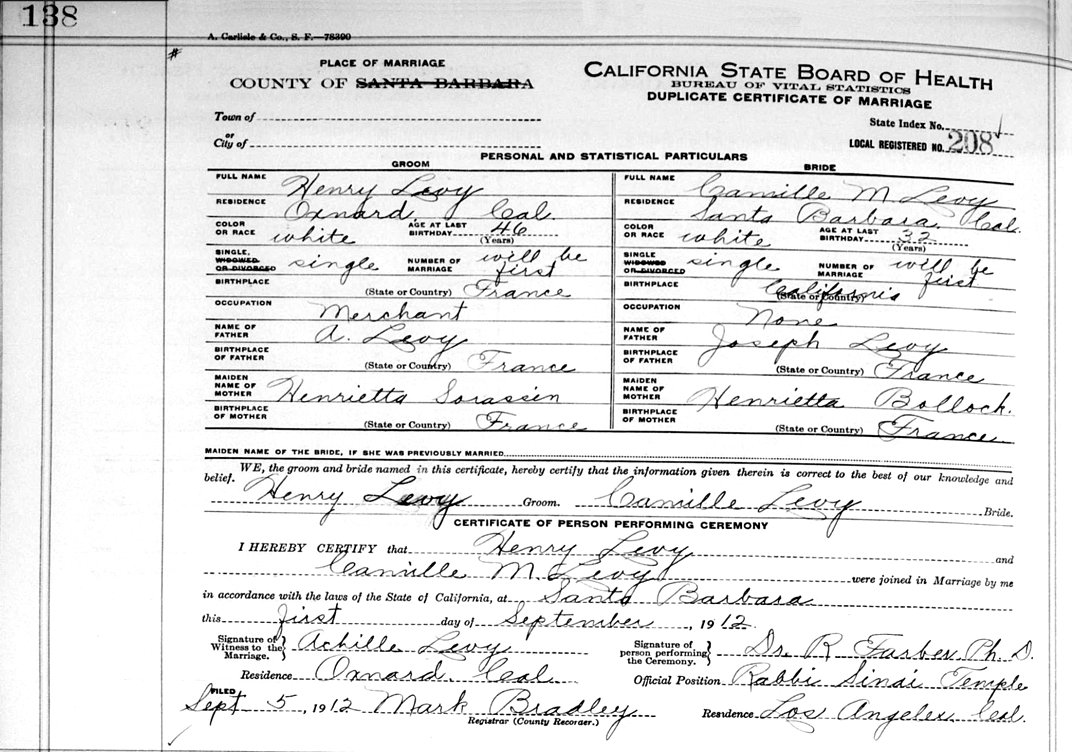 138
A. Carlisle & Co., S. F.—78390
PLACE OF MARRIAGE
COUNTY OF SANTA BARBARA
Town of
or
City of
CALIFORNIA STATE BOARD OF HEALTH
BUREAU OF VITAL STATISTICS
DUPLICATE CERTIFICATE OF MARRIAGE
State Index No.
LOCAL REGISTERED NO. 208
PERSONAL AND STATISTICAL PARTICULARS
GROOM
FULL NAME Henry Levy
RESIDENCE Oxnard Cal.
COLOR OR RACE white AGE AT LAST BIRTHDAY 46 (Years)
SINGLE, WIDOWED OR DIVORCED single NUMBER OF MARRIAGE will be first
BIRTHPLACE (State or Country) France
OCCUPATION Merchant
NAME OF FATHER A. Levy
BIRTHPLACE OF FATHER (State or Country) France
MAIDEN NAME OF MOTHER Henrietta Sorassin
BIRTHPLACE OF MOTHER (State or Country) France
BRIDE
FULL NAME Camille M Levy
RESIDENCE Santa Barbara Cal.
COLOR OR RACE white AGE AT LAST BIRTHDAY 32 (Years)
SINGLE WIDOWED OR DIVORCED single NUMBER OF MARRIAGE will be first
BIRTHPLACE California (State or Country)
OCCUPATION None
NAME OF FATHER Joseph Levy
BIRTHPLACE OF FATHER (State or Country) France
MAIDEN NAME OF MOTHER Henrietta Bolloch.
BIRTHPLACE OF MOTHER (State or Country) France
MAIDEN NAME OF THE BRIDE, IF SHE WAS PREVIOUSLY MARRIED
WE, the groom and bride named in this certificate, hereby certify that the information given therein is correct to the best of our knowledge and
belief.
Henry Levy Groom. Camille Levy Bride.
CERTIFICATE OF PERSON PERFORMING CEREMONY
I HEREBY CERTIFY that Henry Levy and
Camille M Levy were joined in Marriage by me
in accordance with the laws of the State of California, at Santa Barbara
this first day of September, 1912
Signature of Witness to the Marriage. Achille Levy
Residence Oxnard Cal.
Signature of person performing the Ceremony. Dr. R Farber Ph. D.
Official Position Rabbi Sinai Temple
FILED
Sept 5, 1912 Mark Bradley
Registrar (County Recorder.)
Residence Los Angeles Cal.